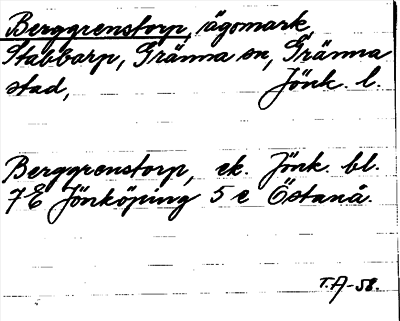 Berggrenstorp, ägomark
Stabbarp, Gränna sn, Gränna
stad, Jönk. l.
Berggrenstorp, ek. Jönk. bl.
7E Jönköping 5 e Östanå.
T.A-58.